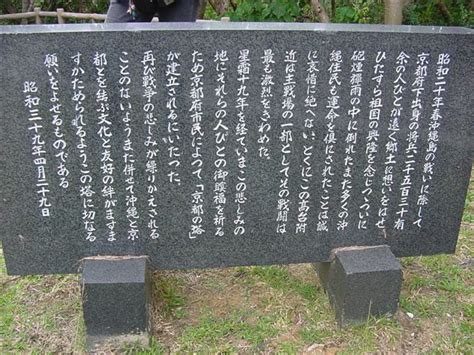 昭和二十年春沖縄島の戦いに際して
京都府下出身の将兵二千五百三十有
余の人びとが遠く郷土に想いをはせ
ひたすら祖国の興隆を念じつゝついに
砲煙弾雨の中に倒れたまた多くの沖
縄住民も運命を倶にされたことは誠
に哀惜に絶へないとくにこの高台附
近は主戦場の一部としてその戦闘は
最も激烈をきわめた
星霜十九年を経ていまこの悲しみの
地にそれらの人びとの御冥福を祈る
ため京都府市民によって「京都の塔」
が建立されるにいたった
再び戦争の悲しみが繰りかえされる
ことのないようまた併せて沖縄と京
都とを結ぶ文化と友好の絆がますま
すかためられるようこの塔に切なる
願いをよせるものである
昭和三十九年四月二十九日